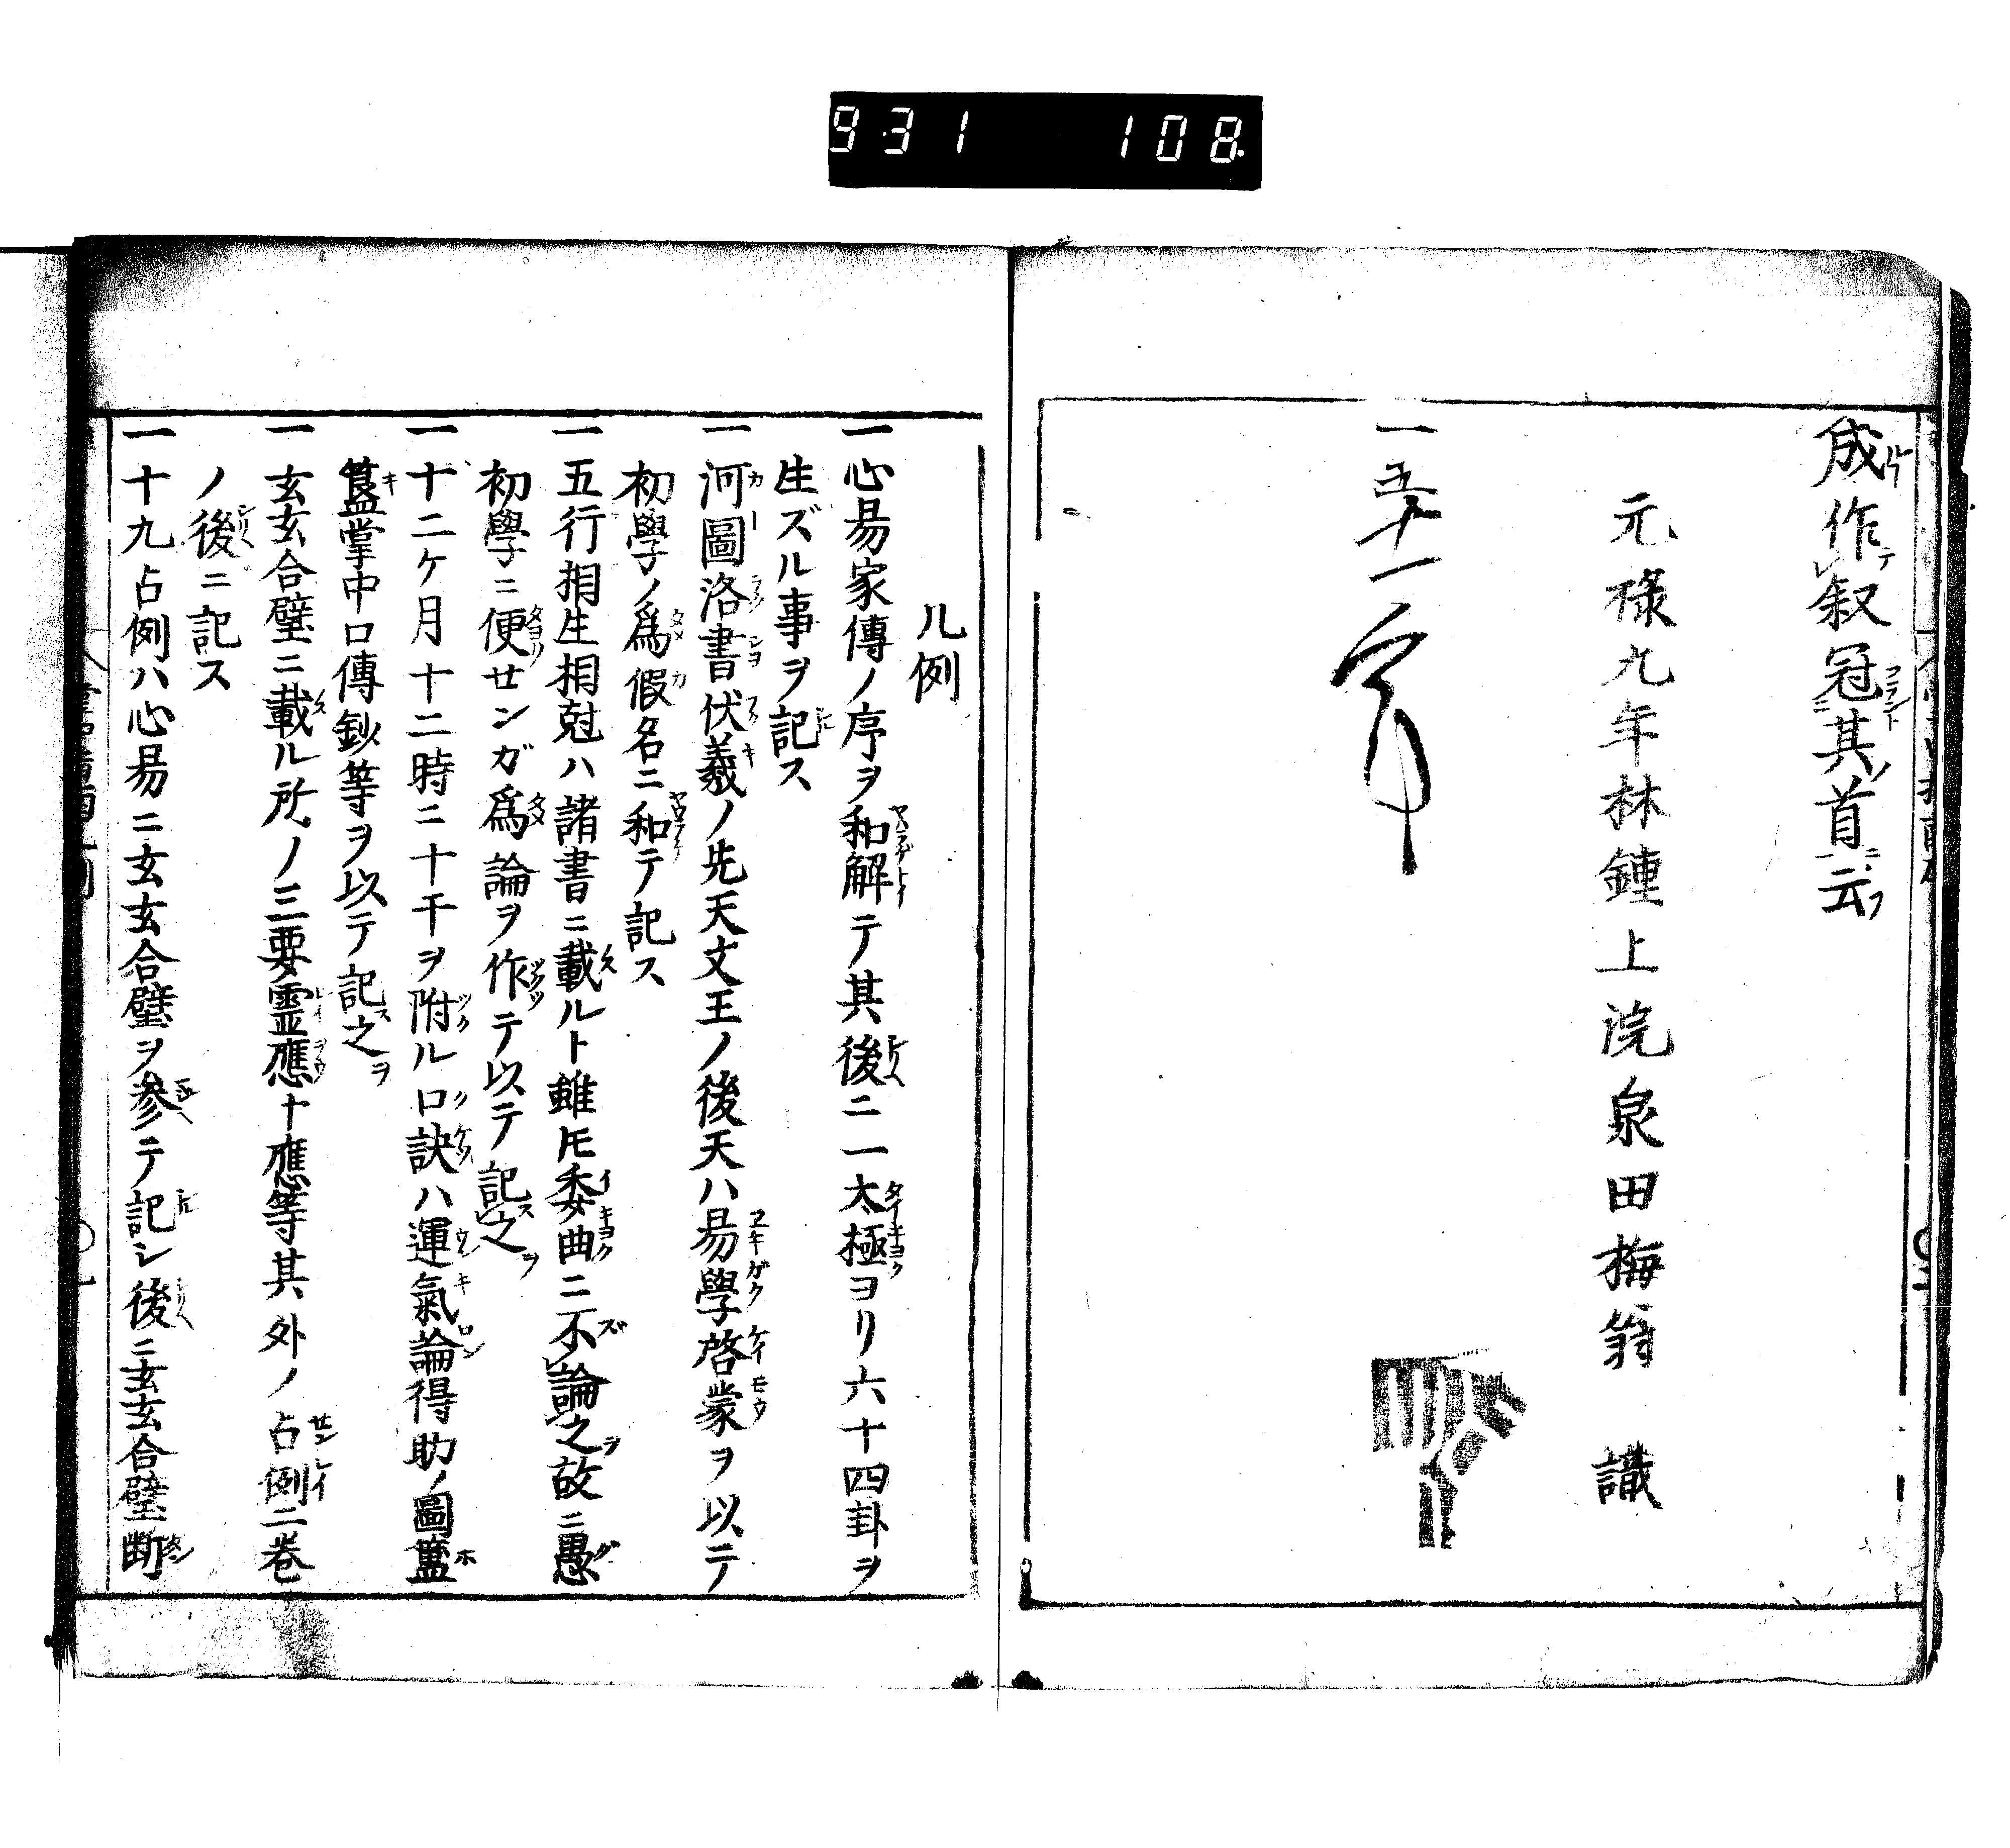 931 108
成作叙冠其首云
元禄九年林鍾上浣泉田梅翁 識
凡例
一心易家傳ノ序ヲ和解テ其後ニ一太極ヨリ六十四卦ヲ
生ズル事ヲ記ス
一河圖洛書伏羲ノ先天文王ノ後天ハ易學啓蒙ヲ以テ
初學ノ爲假名ニ和テ記ス
一五行相生相尅ハ諸書ニ載ルト雖𪜈委曲ニ不論之故ニ愚
初學ニ便センガ爲論ヲ作テ以テ記之
一十二ケ月十二時ニ十干ヲ附ル口訣ハ運氣論得助ノ圖簠
簋掌中口傳鈔等ヲ以テ記之
一玄玄合璧ニ載ル所ノ三要靈應十應等其外ノ占例二巻
ノ後ニ記ス
一十九占例ハ心易ニ玄玄合璧ヲ参テ記シ後ニ玄玄合璧断